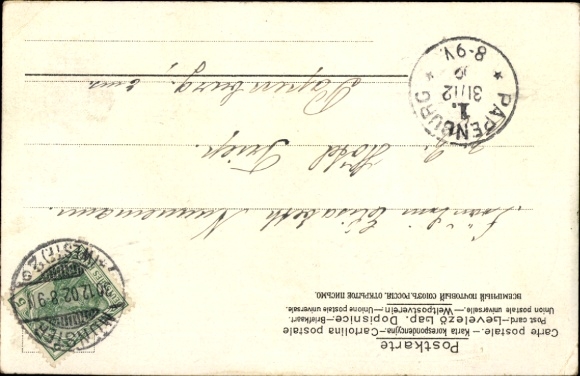 Postkarte
Carte postale. — Karta korespondencyjna — Cartolina postale
Post card — Levelező Lap. — Dopisnice — Briefkaart.
Union postale universelle. — Weltpostverein — Unione postale universale.
ВСЕМИРНЫЙ ПОЧТОВЫЙ СОЮЗЪ. РОССІЯ. ОТКРЫТОЕ ПИСЬМО.
MÜNSTER
(WESTF.) 2
30.12.02. 8-9V
Fräulein Elisabeth Nünnemann.
Hotel Triep.
Papenburg, Ems
PAPENBURG
1.
31/12
8-9V.